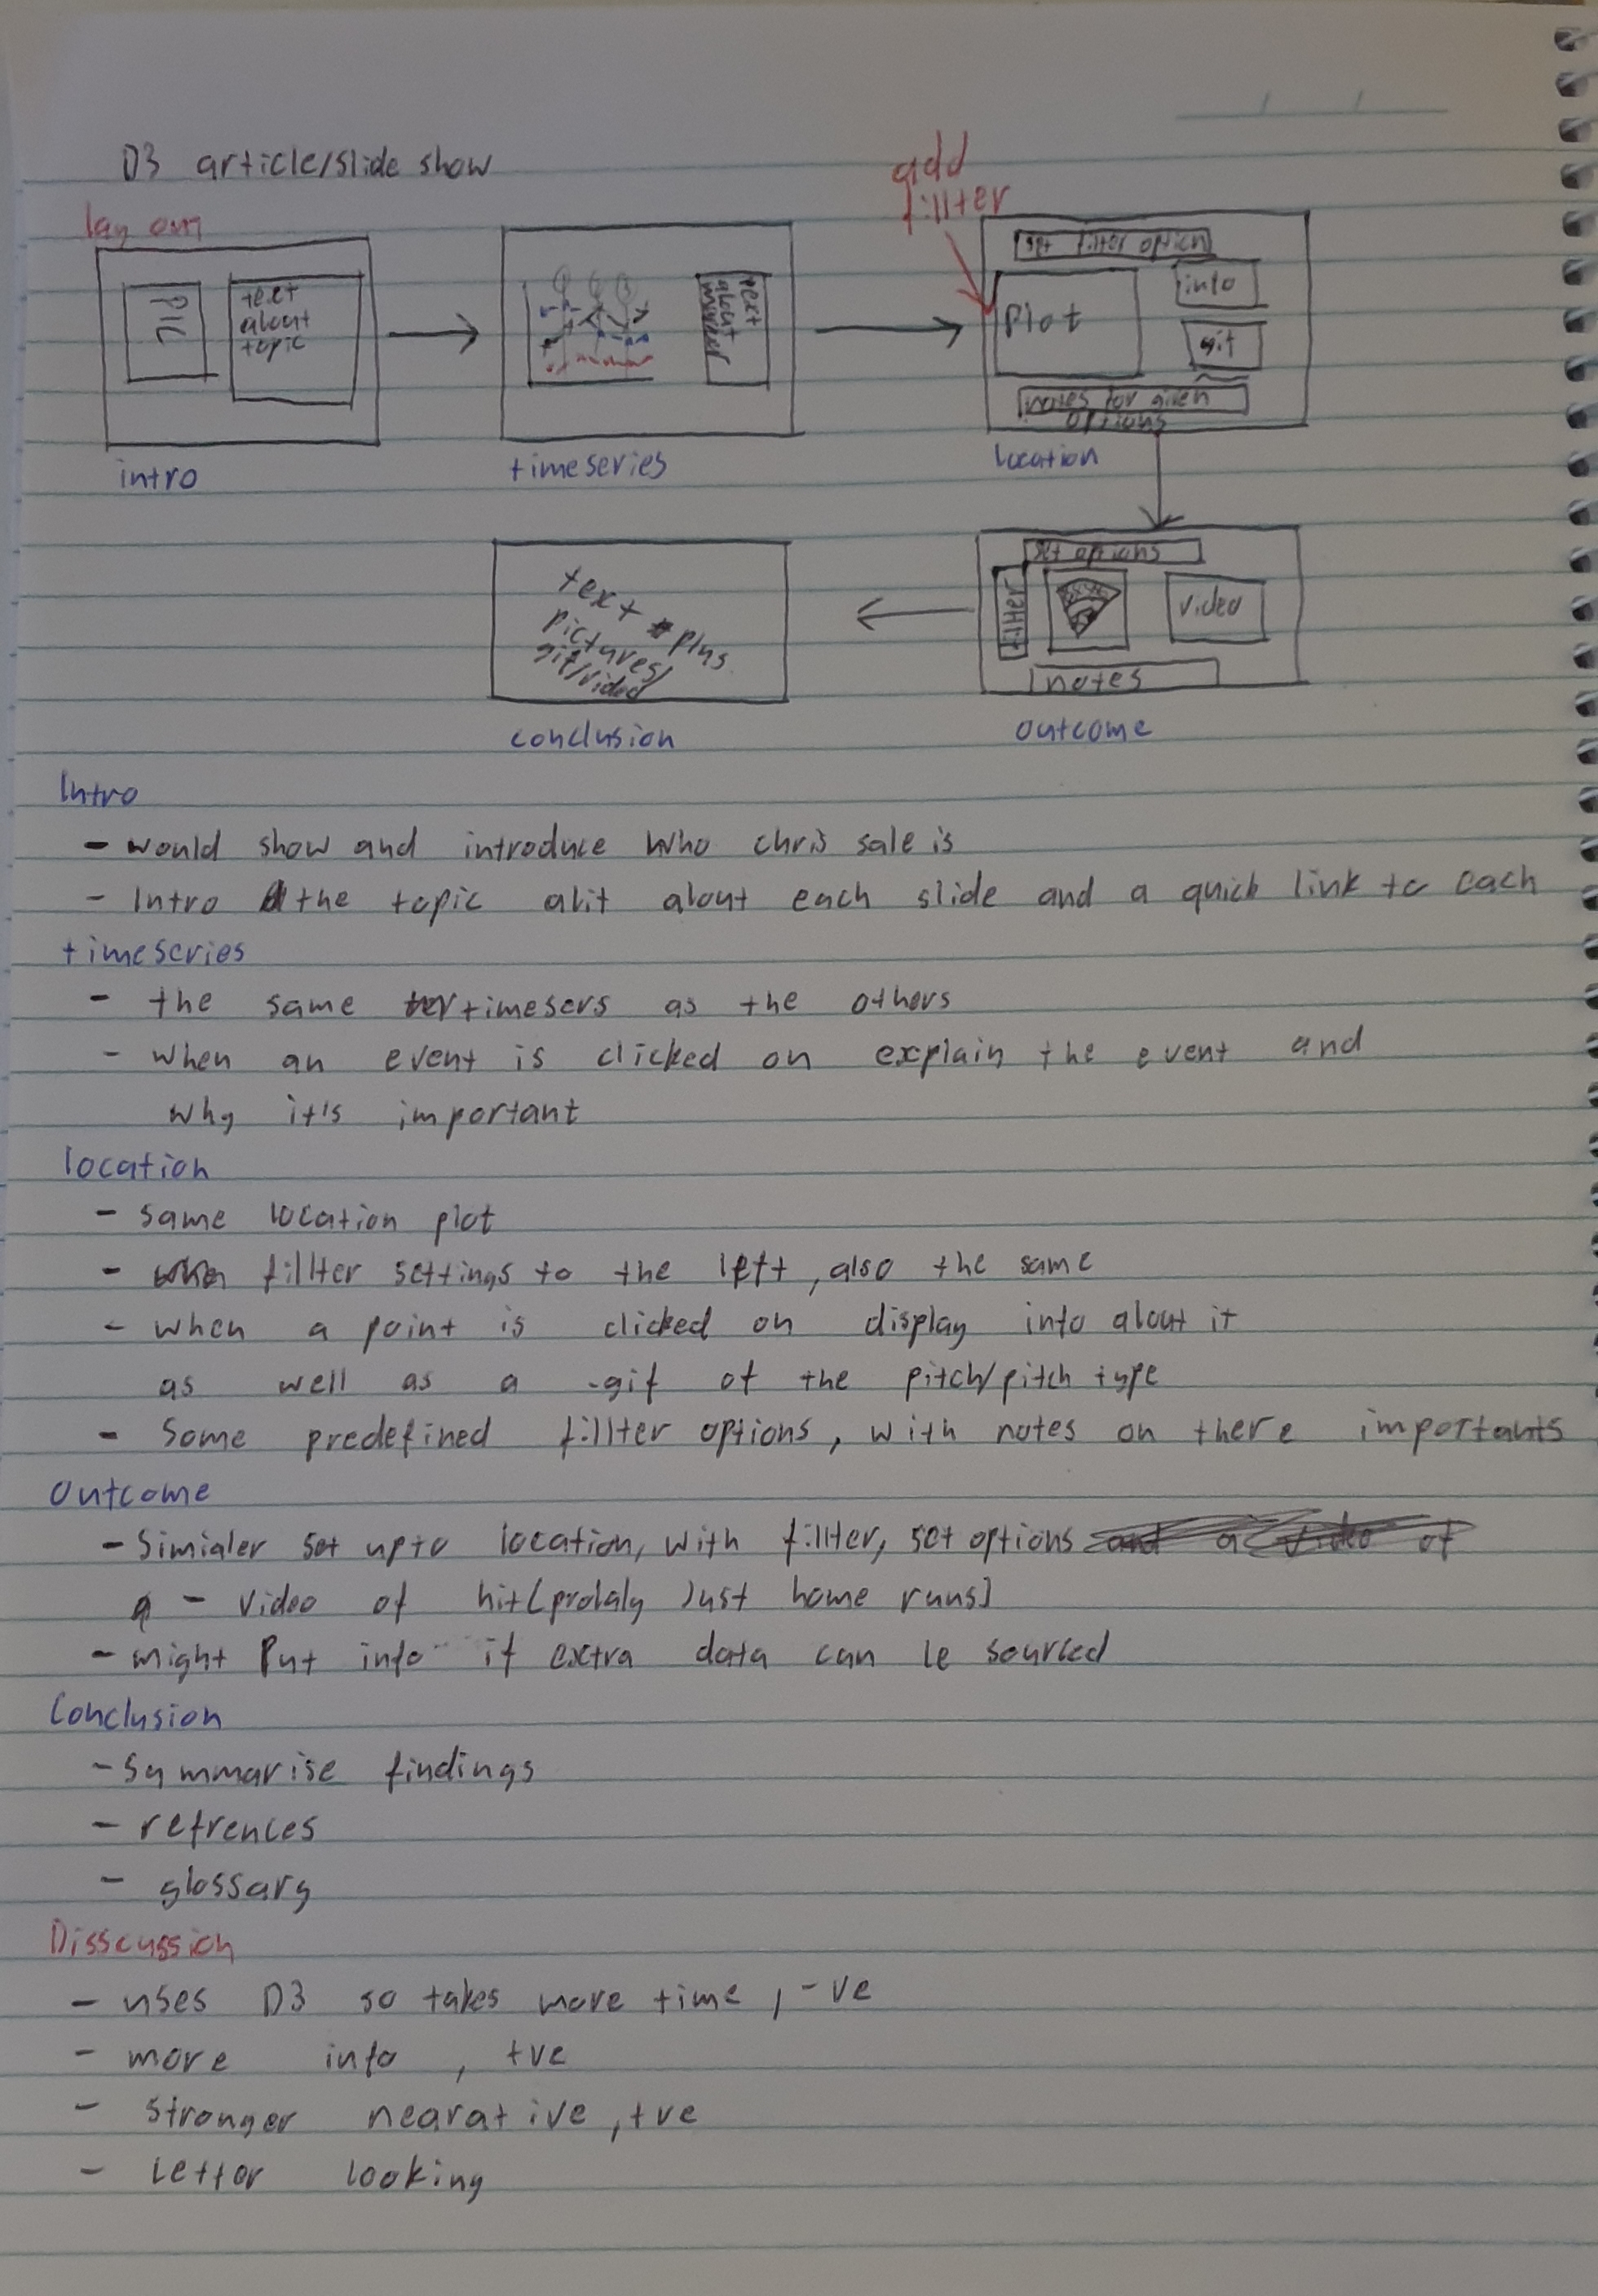 D3 article/slide show
lay out
add
fillter
PIC
text
about
topic
text
about
set filter option
Plot
info
gif
notes for given
options
intro
timeseries
location
text plus
pictures/
gif/video
set options
filter
video
notes
conclusion
outcome
Intro
- would show and introduce who chris sale is
- Intro the topic abit about each slide and a quick link to each
timeseries
- the same timesers as the others
- when an event is clicked on explain the event and
why it's important
location
- same location plot
- fillter settings to the left, also the same
- when a point is clicked on display info about it
as well as a .gif of the pitch/pitch type
- Some predefined fillter options, with notes on there importants
Outcome
- Simialer set up to location, with fillter, set options and a video of
- video of hit (probaly Just home runs)
- might Put info if extra data can be sourced
Conclusion
- Symmarise findings
- refrences
- glossary
Disscussion
- uses D3 so takes more time, -ve
- more info, +ve
- stronger nearative, +ve
- better looking